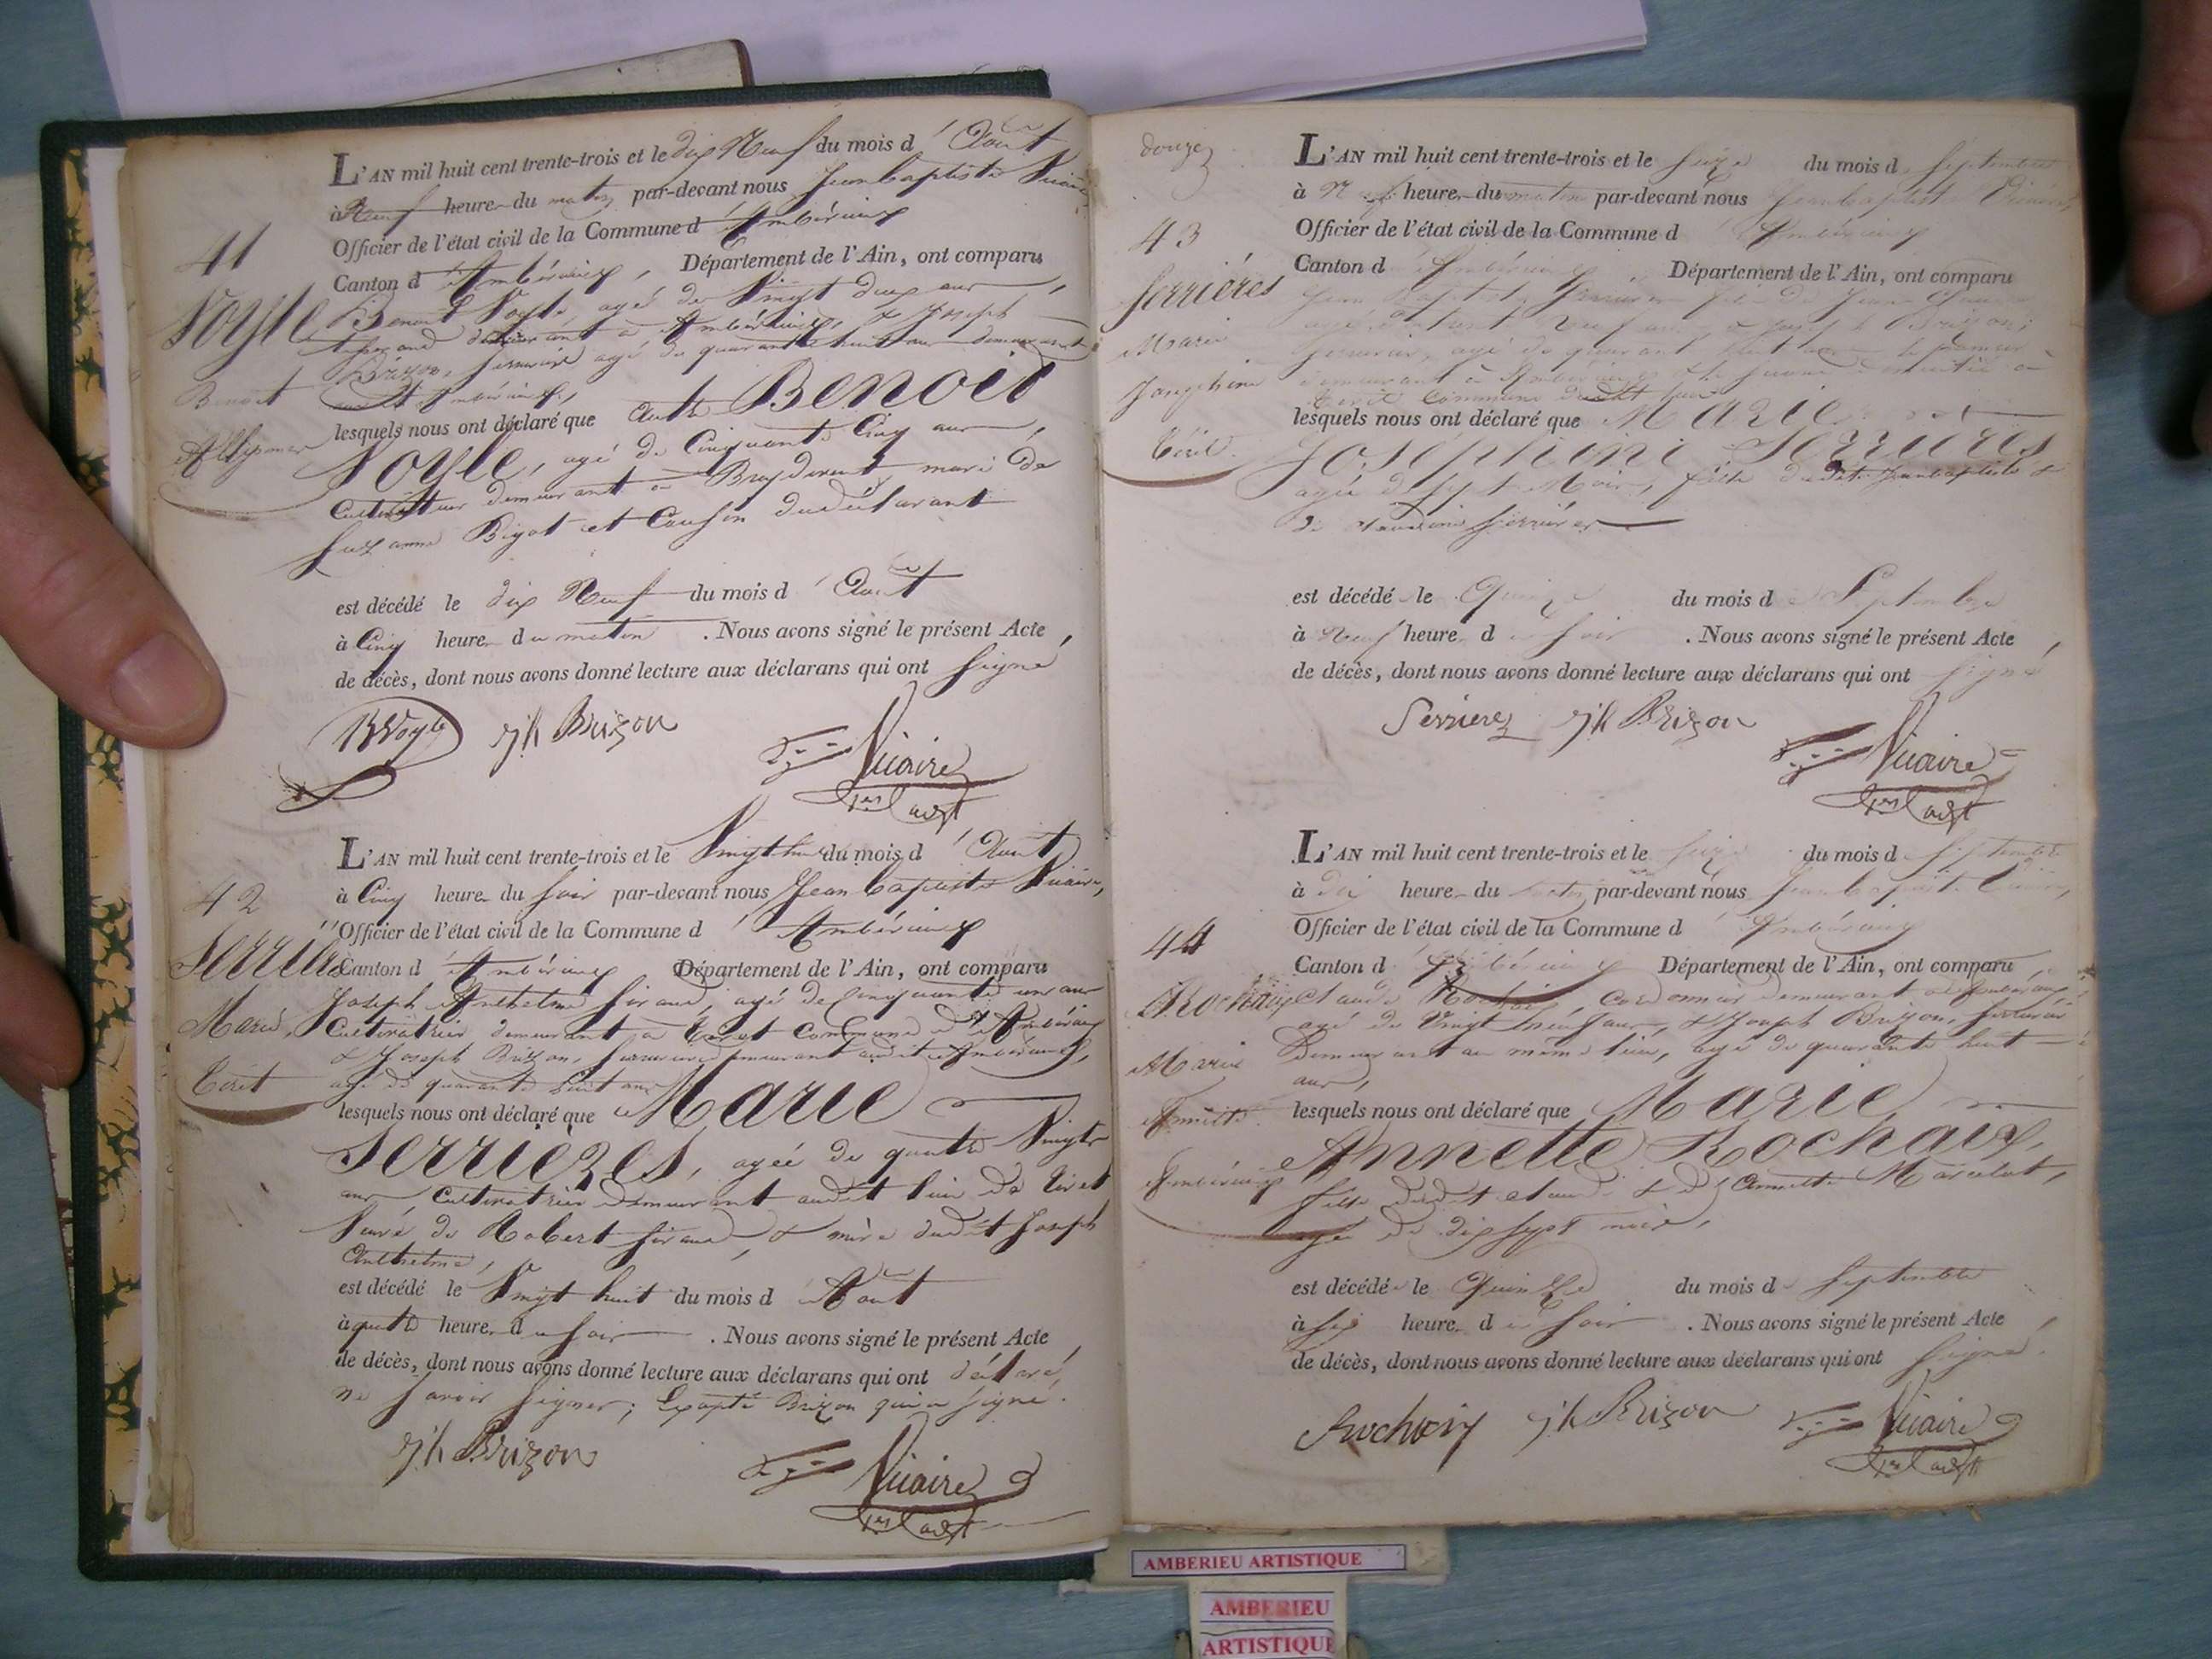 L'AN mil huit cent trente-trois et le dix Neuf du mois d'Août
à Neuf heure du matin par-devant nous Jean baptiste Vicaire
Officier de l'état civil de la Commune d'Ambérieux
41
Canton d'Ambérieux, Département de l'Ain, ont comparu
Voyle
Benoit Voyle, agé de Vingt deux ans,
tisserand demeurant à Ambérieux, & Joseph
Brizon, serrurier agé de quarante huit ans demeurant
Benoit
Ambérieux,
lesquels nous ont déclaré que autre Benoit
Voyle, agé de Cinquante Cinq ans,
Cultivateur demeurant à mari de
Suzanne Bigot et Cousin du déclarant
est décédé le dix Neuf du mois d'Août
à Cinq heure du matin. Nous avons signé le présent Acte,
de décès, dont nous avons donné lecture aux déclarans qui ont signé
B Voyle jh Brizon Vicaire
adjt
L'AN mil huit cent trente-trois et le Vingt huit du mois d'Août
à Cinq heure du soir par-devant nous Jean baptiste Vicaire,
42
Officier de l'état civil de la Commune d'Ambérieux
Serrières
Canton d'Ambérieux Département de l'Ain, ont comparu
Joseph Anthelme Siraud, agé de Cinquante un ans
Marie,
Cultivateur demeurant à Tiret Commune d'Ambérieux
& Joseph Brizon, serrurier demeurant audit Ambérieux,
Tiret
agé de quarante huit ans
lesquels nous ont déclaré que Marie
Serrières, agée de quatre Vingts
ans, Cultivatrice demeurant audit lieu de Tiret
Veuve de Robert Siraud, & mère dudit Joseph
Anthelme,
est décédé le Vingt huit du mois d'Août
à quatre heure du soir. Nous avons signé le présent Acte
de décès, dont nous avons donné lecture aux déclarans qui ont déclaré
ne savoir signer; Excepté Brizon qui a signé.
jh Brizon Vicaire
adjt
douze
L'AN mil huit cent trente-trois et le seize du mois de septembre
à Neuf heure du matin par-devant nous Jean baptiste Vicaire,
43
Officier de l'état civil de la Commune d'Ambérieux
Canton d'Ambérieux, Département de l'Ain, ont comparu
Serrières
Jean Baptiste
agé de trente Neuf ans, & Joseph Brizon,
Marie
serrurier, agé de quarante huit ans le premier
Josephine
demeurant à Ambérieux
Commune dudit lieu
lesquels nous ont déclaré que Marie
Tiret.
Joséphine Serrières
agée de sept Mois, fille dudit Jean baptiste &
de Serrières
est décédée le Quinze du mois de Septembre
à Neuf heure du soir. Nous avons signé le présent Acte,
de décès, dont nous avons donné lecture aux déclarans qui ont signé
Serrierez jh Brizon Vicaire
adjt
L'AN mil huit cent trente-trois et le seize du mois de septembre
à dix heure du matin par-devant nous Jean baptiste Vicaire,
44
Officier de l'état civil de la Commune d'Ambérieux
Canton d'Ambérieux Département de l'Ain, ont comparu
Rochaix
Claude Rochaix, Cordonnier demeurant à Ambérieux
agé de Vingt Neuf ans, & Joseph Brizon, serrurier
Marie
demeurant au même lieu, agé de quarante huit
ans,
lesquels nous ont déclaré que Marie
Annette
Annette Rochaix,
Ambérieux
fille dudit Claude & d'Annette Marcelot,
agée de dix sept mois,
est décédée le Quinze du mois de septembre
à six heure du soir. Nous avons signé le présent Acte
de décès, dont nous avons donné lecture aux déclarans qui ont signé.
Rochaix jh Brizon Vicaire
adjt
AMBERIEU ARTISTIQUE
AMBERIEU
ARTISTIQUE